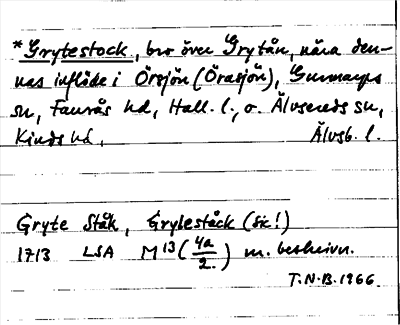 *Grytestock, bro över Grytån, nära den-
nas inflöde i Örsjön (Örasjön), Gunnarps
sn, Faurås hd, Hall. l., o. Älvsereds sn,
Kinds hd, Älvsb. l.
Gryte Ståk, Grytestäck (sic!)
1713 LSA M13 (4a/2.) m. beskrivn.
T.N.B. 1966.